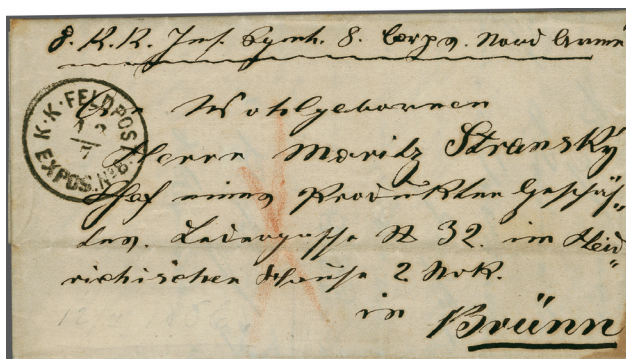 8. K. K. Inf. 8. Corps. Nord Armee
K·K·FELDPOST
7
EXPOS. No 8.
An Wohlgebornen
Herrn Moritz Stransky
Chef eines Produkten Geschäf„
tes. Ledergasse № 32. im
richischen Hause 2 Stok.
in Brünn